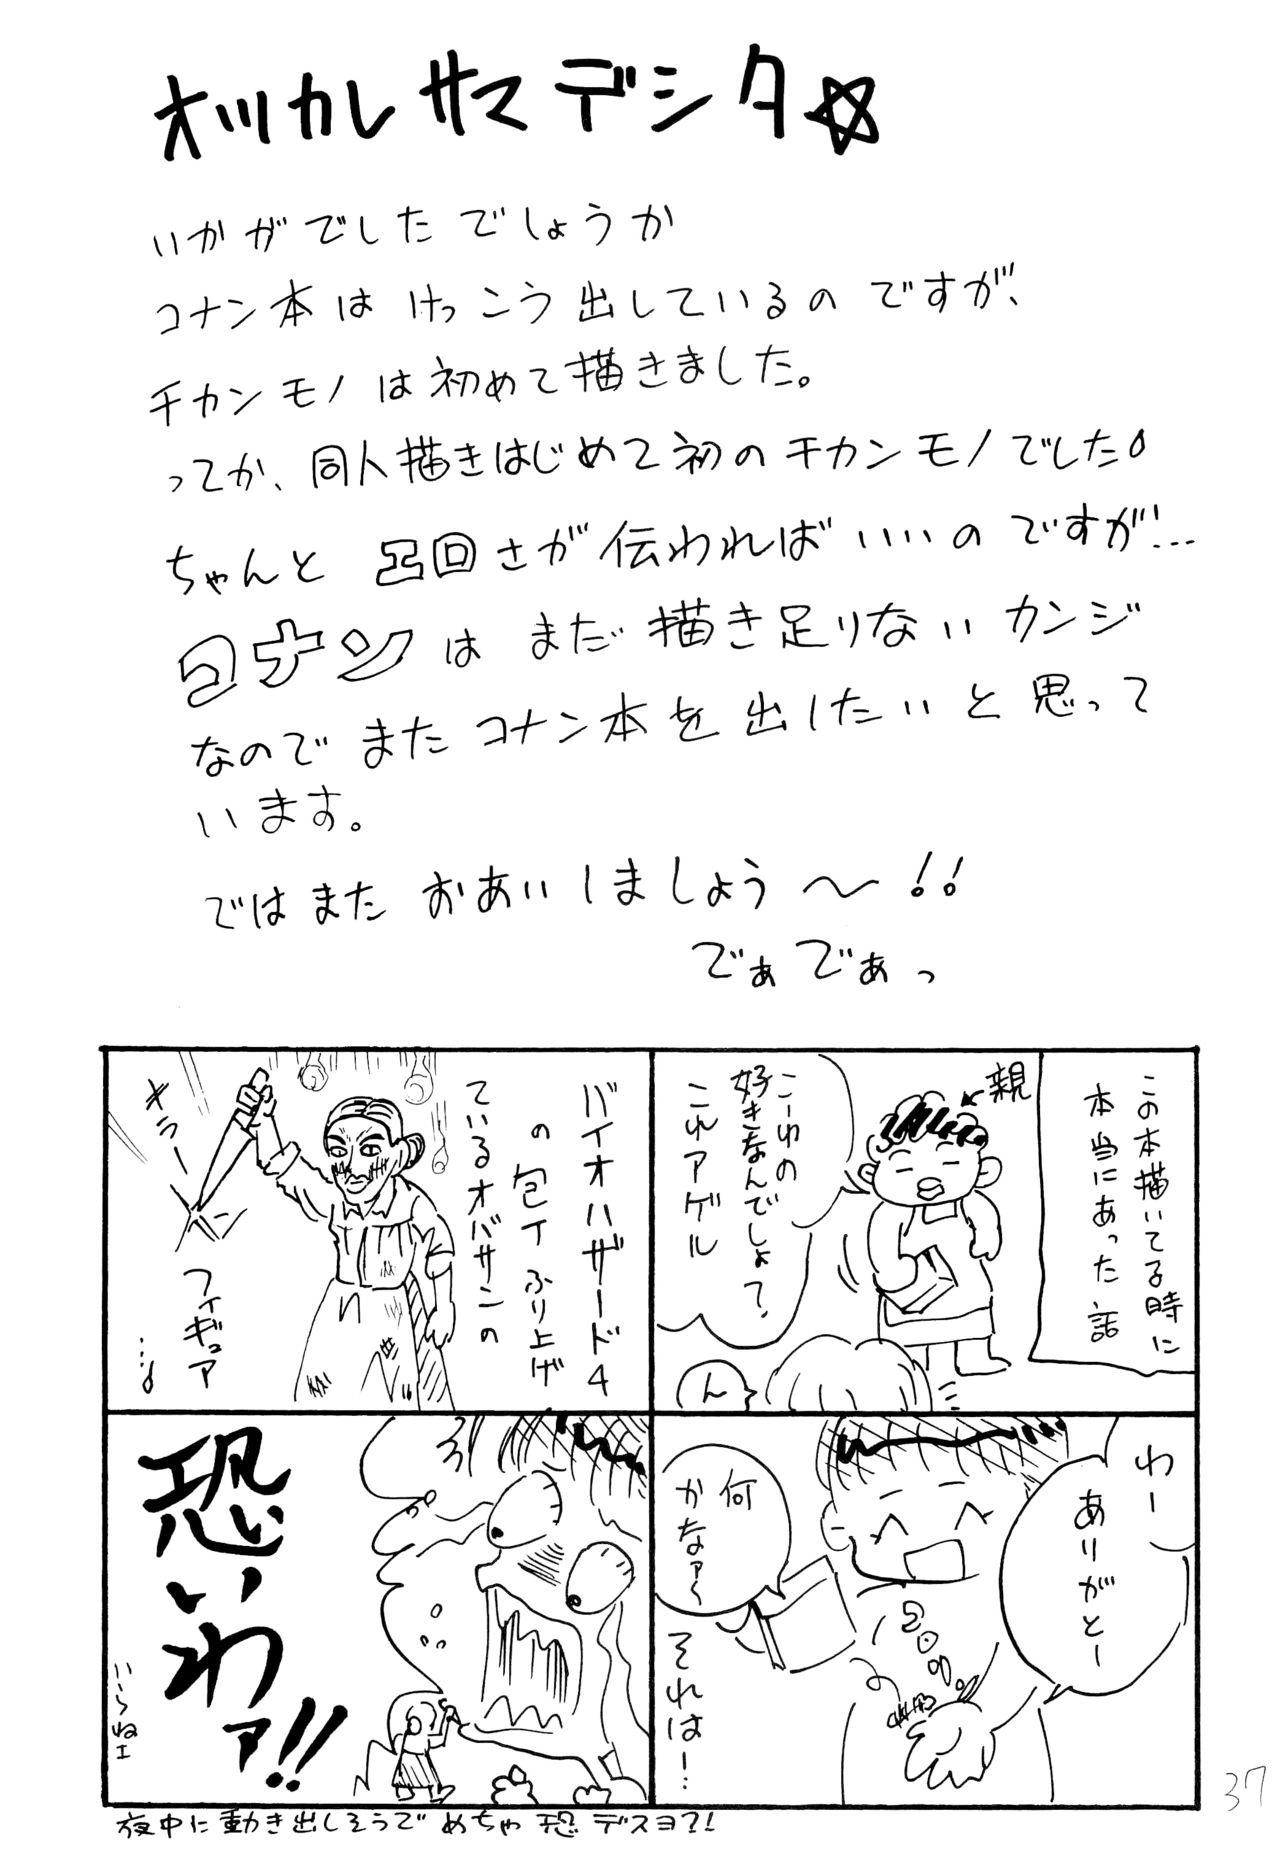 オツカレサマデシタ☆
いかがでしたでしょうか
コナン本はけっこう出しているのですが、
チカンモノは初めて描きました。
ってか、同人描きはじめて初のチカンモノでした
ちゃんと凸凹さが伝わればいいのですが…
コナンはまだ描き足りないカンジ
なのでまたコナン本を出したいと思って
います。
ではまたおあいしましょう〜!!
でぁでぁっ
この本描いてる時に
本当にあった話
親
こーゆの
好きなんでしょ?
これアゲル
ん
わー
ありがとー
何
かなァ〜
それは…
バイオハザード4
の包丁ふり上げ
ているオバサンの
フィギュア
…
キラーン
恐いわァ!!
いらねェ
夜中に動き出しそうでめちゃ恐デスヨ?!
37